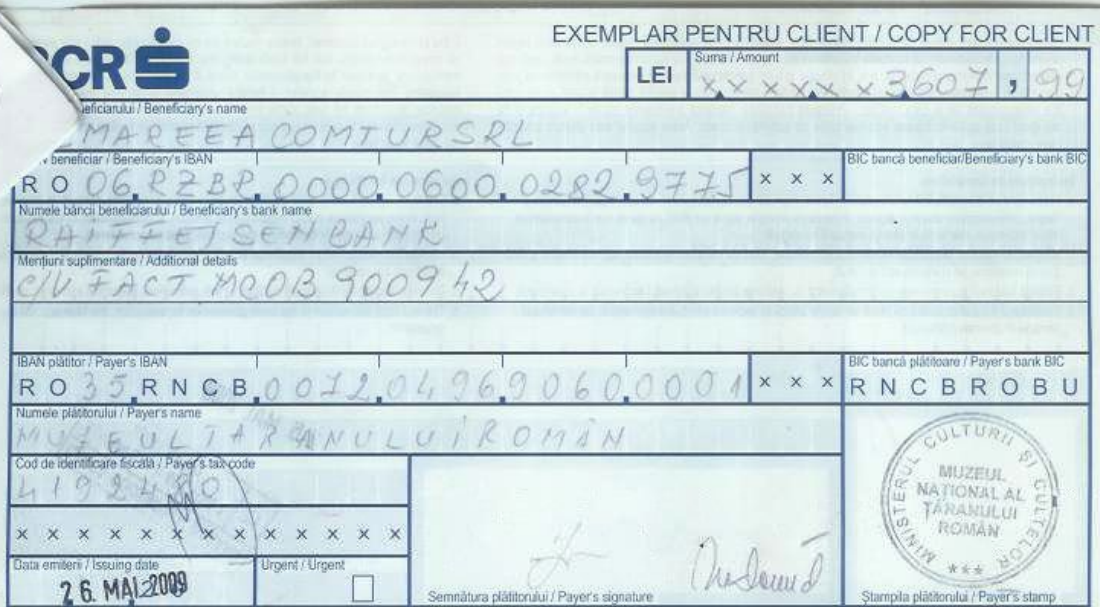 EXEMPLAR PENTRU CLIENT / COPY FOR CLIENT
BCR
LEI
Suma / Amount
x x x x x x 3607, 99
eficiarului / Beneficiary's name
MAREEA COMTUR SRL
beneficiar / Beneficiary's IBAN
RO 06 RZBR 0000 0600 0282 9775 x x x
BIC bancă beneficiar/Beneficiary's bank BIC
Numele băncii beneficiarului / Beneficiary's bank name
RAIFFEISEN BANK
Mențiuni suplimentare / Additional details
C/V FACT MCOB 900942
IBAN plătitor / Payer's IBAN
RO 35 RNCB 0072 0496 9060 0001 x x x
BIC bancă plătitoare / Payer's bank BIC
RNCBROBU
Numele plătitorului / Payer's name
MUZEUL TARANULUI ROMÂN
Cod de identificare fiscală / Payer's tax code
4192480
x x x x x x x x x x x x x
Data emiterii / Issuing date
26. MAI 2009
Urgent / Urgent
Semnătura plătitorului / Payer's signature
MINISTERUL CULTURII ȘI CULTELOR
MUZEUL
NAȚIONAL AL
ȚĂRANULUI
ROMÂN
***
Ștampila plătitorului / Payer's stamp